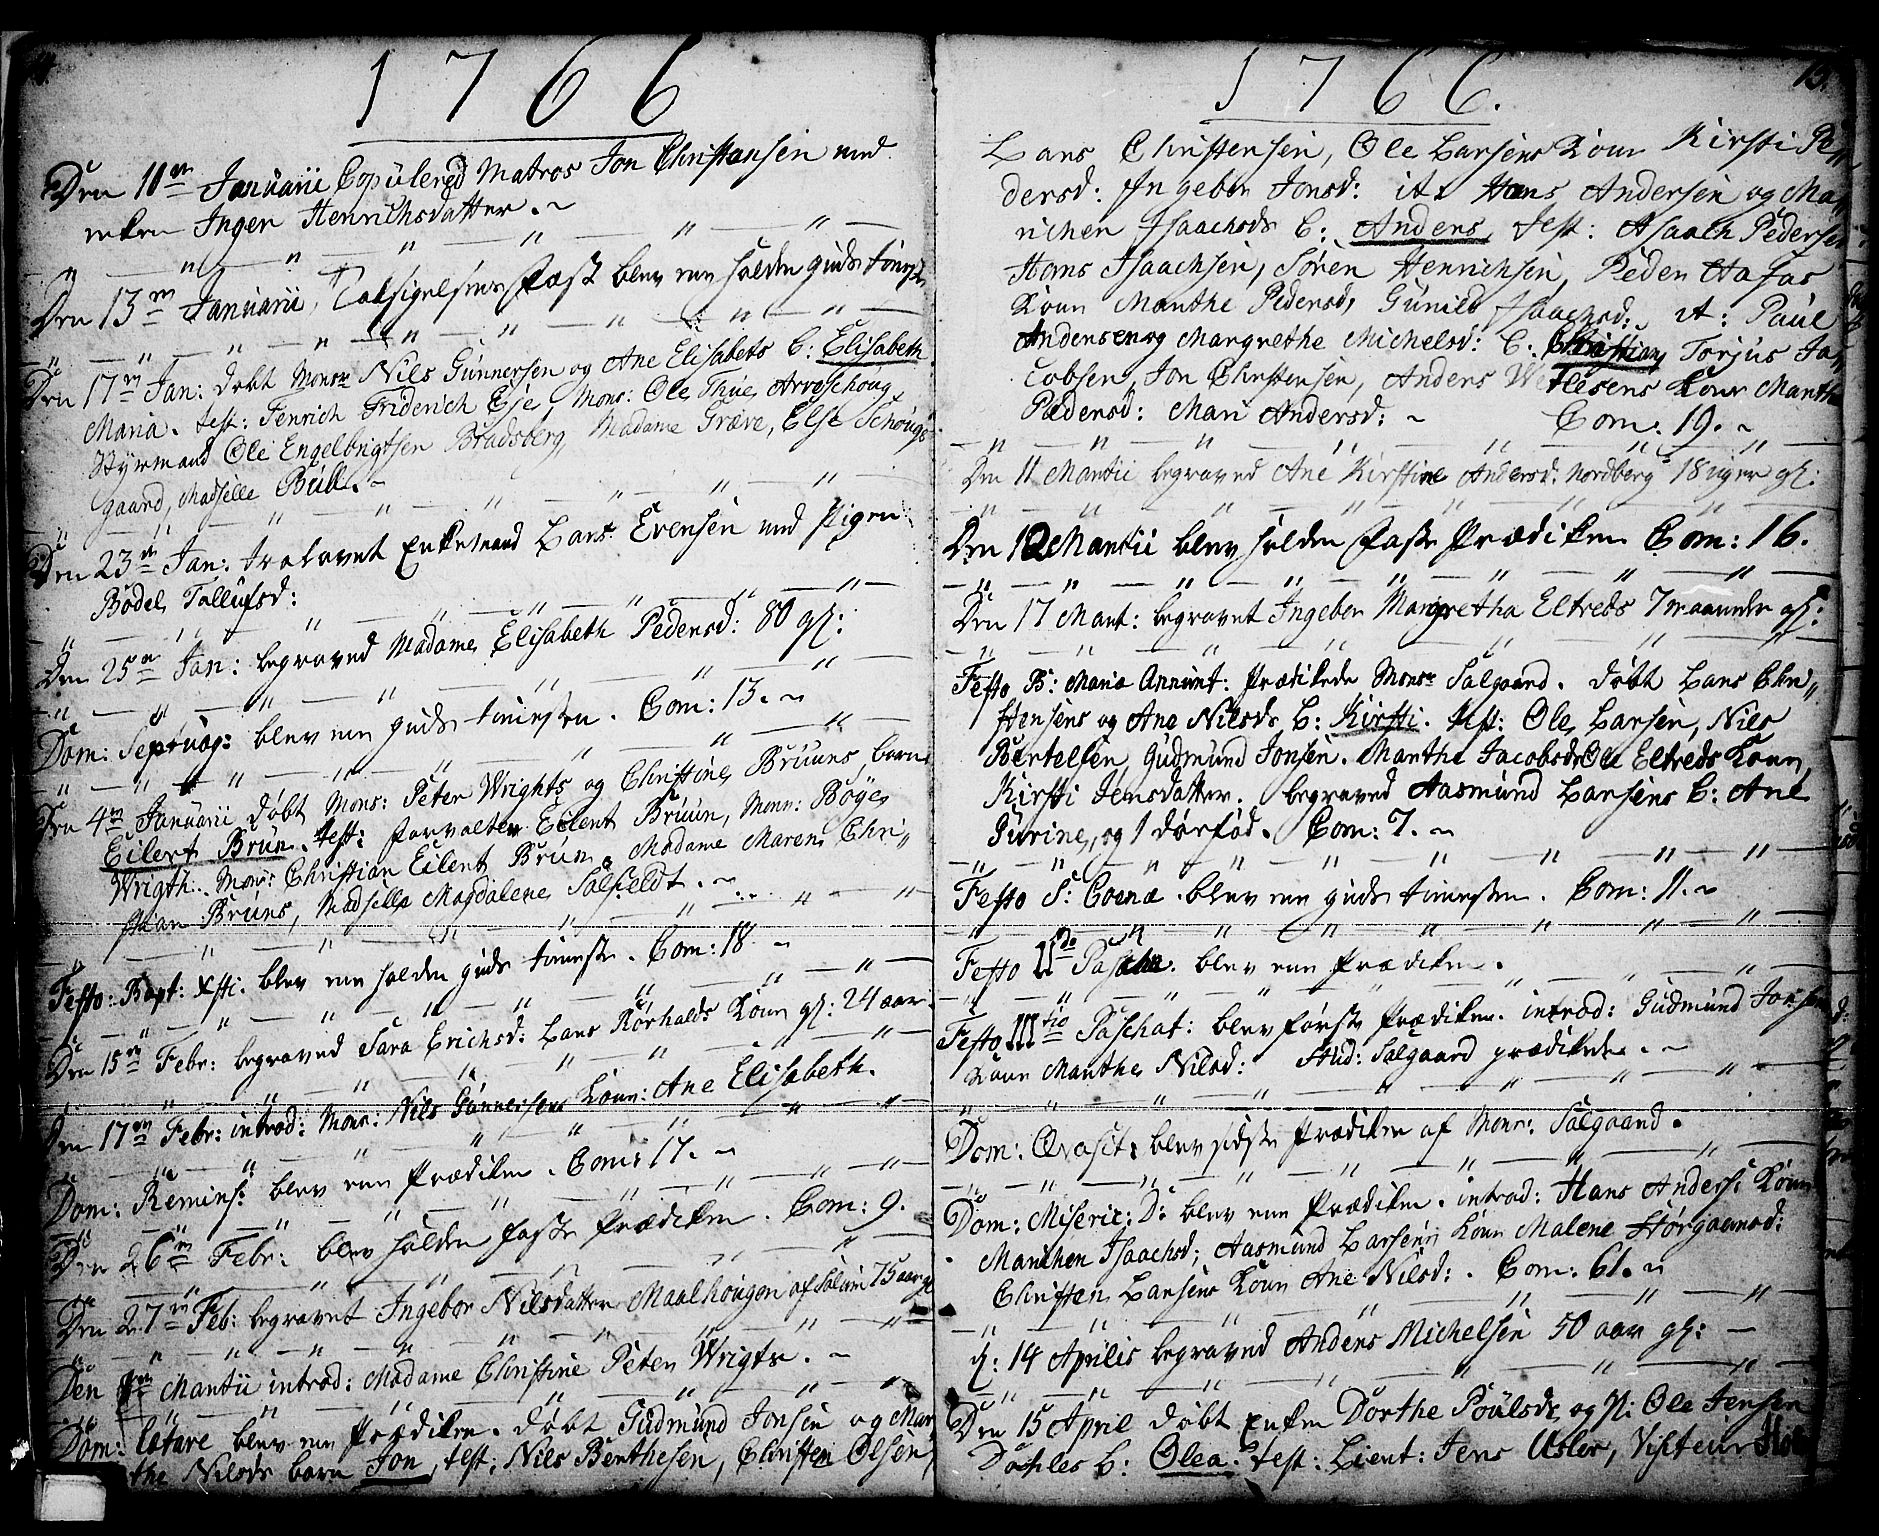 1766
Den 11te Januarii Copulered Matros Jon Christansen med
enken Inger Henrichsdatter.
Den 13de Januarii, Taksigelses Fæst blev en holden guds tieneste
Den 17de Jan: døbt Monsr Nils Gunnersen og Ane Elisabets b: Elisabeth
Maria. test: Henrich Friderich Eje, Mons: Ole Thue, Arveschoug,
Styrmand Ole Engelbrigtsen Bradsberg, Madame Græve, Else Schouge
gaard, Madselle Bull.
Den 23de Jan: trolovet Enkemand Lars Evensen med Pigen
Bodel Tollufsd:
Den 25de Jan: begraved Madame Elisabeth Pedersd: 80 gl:
Dom: Septuag: blev en guds tienesten. Com: 13.
Den 4de Januarii døbt Mons: Peter Wrights og Christine Bruuns barn
Eilert Brun. test: forvalter Eilert Bruun, Monsr: Böge
Wrigth. Mons: Christian Eilert Brun. Madame Maren Chri-
stian Bruns, Madselle Magdalene Salfeldt.
Festo: Bapt: Xsti: blev en holden guds tieneste. Com: 18
Den 15de Febr: begraved Sara Erichsd: Lars Rörholds Koun gl: 24 aar.
Den 17de Febr: introd: Mons: Nils Gunnersens Koun: Ane Elisabeth.
Dom: Reminsc: blev en Prædiken. Com: 17.
Den 26de Febr: blev holden faste Prædiken. Com: 9.
Den 27de Feb: begravet Ingebor Nilsdatter Maalhougen af Solum 75 aar gl
Den Martii introd: Madame Christine Peter Wrigts.
Dom: lætare blev en Prædiken. døbt Gudmund Jonsen og Mar
the Nilsds barn Jon, test: Nils Berthelsen, Christen Olsen,
1766.
15.
Lars Christensen, Ole Larsens Koun Kirsti Pe-
dersd: Ingebor Jonsd: it: Hans Andersen og Ma-
richen Isaachsds b: Anders, test: Isaach Pedersen
Hans Isaachsen, Sören Henrichsen, Peder
Koun Marthe Pedersd, Gunild Isaachsd: it: Paul
Andersen og Margrethe Michelsd: b: Christian, Torjus Ja-
cobsen, Jon Christensen, Anders Koun Marthe
Pedersd: Mari Andersd: Com: 19.
Den 11 Martii begraved Ane Kirstine Andersd: Nordberg 18 uger gl:
Den 12 Martii blev holden faste Prædiken Com: 16.
Den 17 Mart: begravet Ingebor Margretha Eltreds 7 maaneder gl:
Festo B: Maria Annunt: Prædikede Monsr Salgaard. døbt Lars Chri-
stensens og Ane Nilsds b: Kirsti. test: Ole Larsen, Nils
Bertelsen, Gudmund Jonsen. Marthe Jacobsds Ole Eltreds Koun,
Kirsti Jensdatter. begraved Aasmund Larsens b: Ane
Gurine, og 1 dødfød. Com: 7.
Festo S: Coenæ blev en guds tienesten. Com: 11.
Festo IIdo Paschæ blev en Prædiken.
Festo IIItio Paschat: blev förste Prædiken. introd: Gudmund Jonsens
Koun Marthe Nilsd: Stud: Salgaard prædikede.
Dom: Qvasit: blev sidste Prædiken af Monsr: Salgaard.
Dom: Miseric: D: blev en Prædiken. introd: Hans Anders: Koun
Marichen Isaachsd; Aasmund Larsens Koun Malene
Christen Larsens Koun Ane Nilsd: Com: 61.
d: 14 Aprilis begraved Anders Michelsen 50 aar gl:
Den 15 April døbt Enken Dorthe Poulsds og Ole Jensen
Dahles b: Olea. test: Lieut: Jens Usler, Visiteur